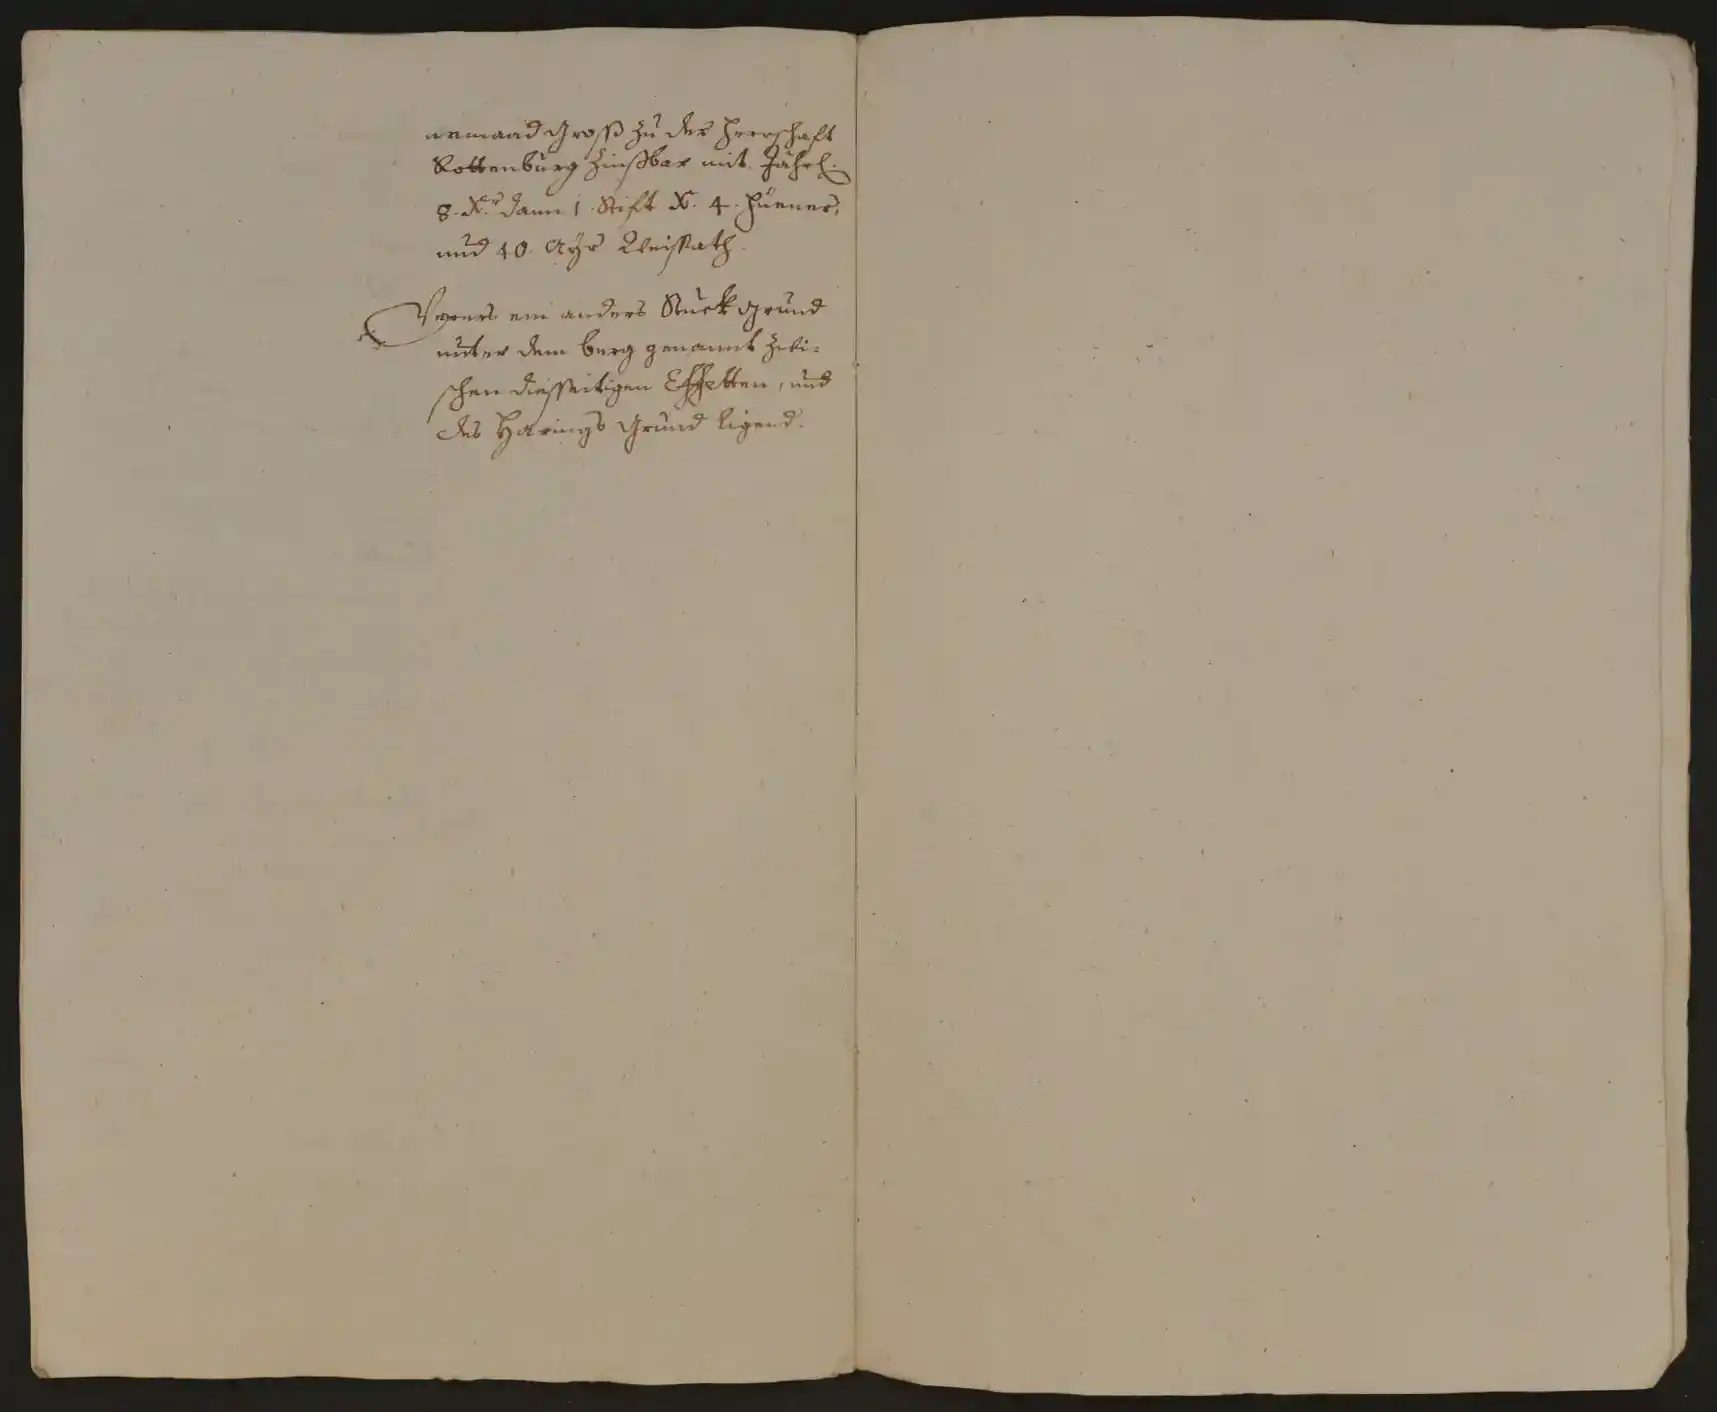 nemaad Gross zu der Herrschaft
Rottenburg Zinssbar mit Jährl.
8. Xr. dann 1. Stift X. 4. Hüener,
und 40. Ayr Weissath.
Ferers ein anders Stuck Grund
unter dem berg genannt zwi-
schen dießseitigen Effetten, und
des Harings Grund ligend.